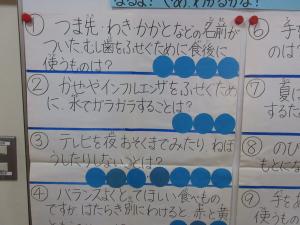 ① つま先・わき・かかとなどの名前が
ついた、むし歯をふせぐために食後に
使うものは?
② かぜやインフルエンザをふせぐため
に、水でガラガラすることは?
③ テレビを夜おそくまでみたり、ねぼ
うしたりしないことは?
④ バランスよくとってほしい食べもの
ですが、はたらき別にわけると、赤と黄
⑥ 手を
のは
⑦ 夏に
するた
⑧ のび
もとにな
⑨ 手を